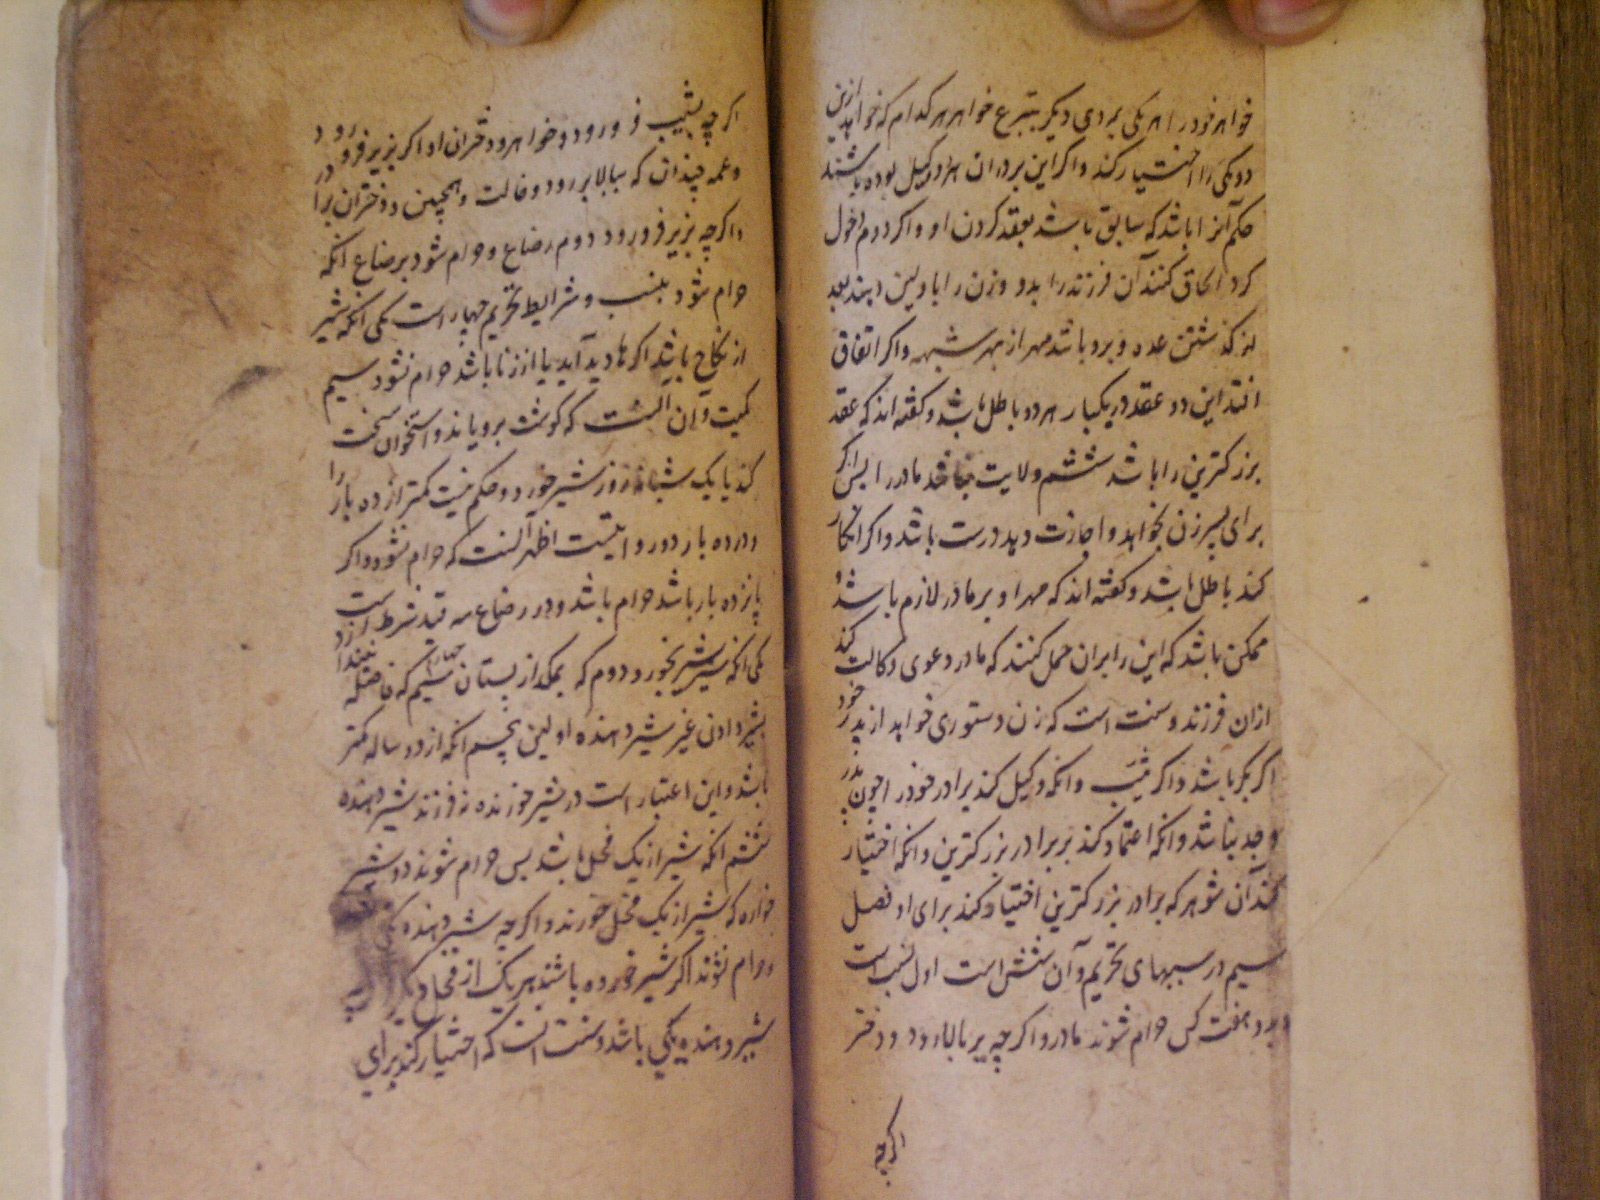 خواهر خود را هر یکی بر دی دیکر بتبرع خواهر هر کدام که خواهد ازین
دو یکی را اختیار کند و اکر این برادران هر دو وکیل بوده باشند
حکم آنرا باشد که سابق باشد بعقد کردن او و اکر دوم دخول
کرد الحاق کنند آن فرزند را بدو و زن را با ولین دهند بعد
از کذشتن عده و برو باشد مهر از بهر شبهه و اکر اتفاق
افتد این دو عقد در یکبار هر دو باطل باشد و کفته اند که عقد
بزرکترین را باشد ششم ولایت نباشد مادر را پس اکر
برای پسر زن بخواهد و اجازت دهد درست باشد و اکر انکار
کند باطل باشد و کفته اند که مهر او بر مادر لازم باشد
ممکن باشد که این را بران حمل کنند که مادر دعوی وکالت کند
ازان فرزند و سنت است که زن دستوری خواهد از پدر خود
اکر بکر باشد و اکر ثیب و انکه وکیل کند برادر خود را چون پدر
و جد نباشد و انکه اعتماد کند بر برادر بزرکترین و انکه اختیار
کند آن شوهر که برادر بزرکترین اختیار کند برای او فصل
سیم در سببهای تحریم و آن شش است اول نسب است
بدو هفت کس حرام شوند مادر و اکر چه بر بالا رود و دختر
اکر چه
اکر چه بشیب فرو رود و خواهر و دختران او اکر بزیر فرو رود
و عمه چندان که ببالا بر رود و خالت و همچنین و دختران برادر
و اکر چه بزیر فرو رود دوم رضاع و حرام شود برضاع انکه
حرام شود بنسب و شرایط تحریم چهار است یکی انکه شیر
از نکاح باشد اکر ها دید آید یا از زنا باشد حرام نشود سیم
کمیت و آن آنست که کوشت برویاند و استخوان سخت
کند یا یک شبانه روز شیر خورد و حکم نیست کمتر از ده بار را
و در ده بار دو روایتست اظهر آنست که حرام نشود و اکر
پانزده بار باشد حرام باشد و در رضاع سه قید شرط است
یکی انکه سیر شیر بخورد دوم که بمکد از پستان سیم که فاصله
بشیر دادن غیر شیر دهنده اولین پنجم انکه از دو ساله کمتر
باشد و این اعتبار است در شیر خورنده نه فرزند شیر دهنده
ششم انکه شیر از یک فحل باشد پس حرام شوند دو شیر
خواره که شیر از یک فحل خورند و اکر چه شیر دهنده
و حرام نشوند اکر شیر خورده باشند هر یک از فحل
شیر دهنده یکی باشد و سنت است که اختیار کند برای